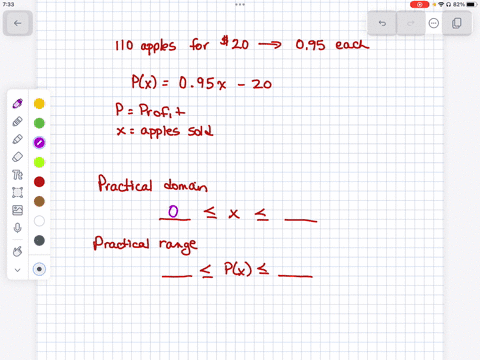 7:33
82%
110 apples for $20 → 0.95 each
P(x) = 0.95x - 20
P = Profit
x = apples sold
Practical domain
0 ≤ x ≤ ___
Practical range
___ ≤ P(x) ≤ ___